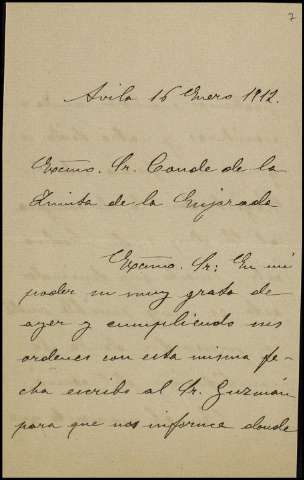 7
Avila 16 Enero 1912.
Excmo. Sr. Conde de la
Quinta de la Enjarada
Excmo. Sr: En mi
poder su muy grata de
ayer y cumpliendo sus
ordenes con esta misma fe-
cha escribo al Sr. Guzmán
para que nos informe donde